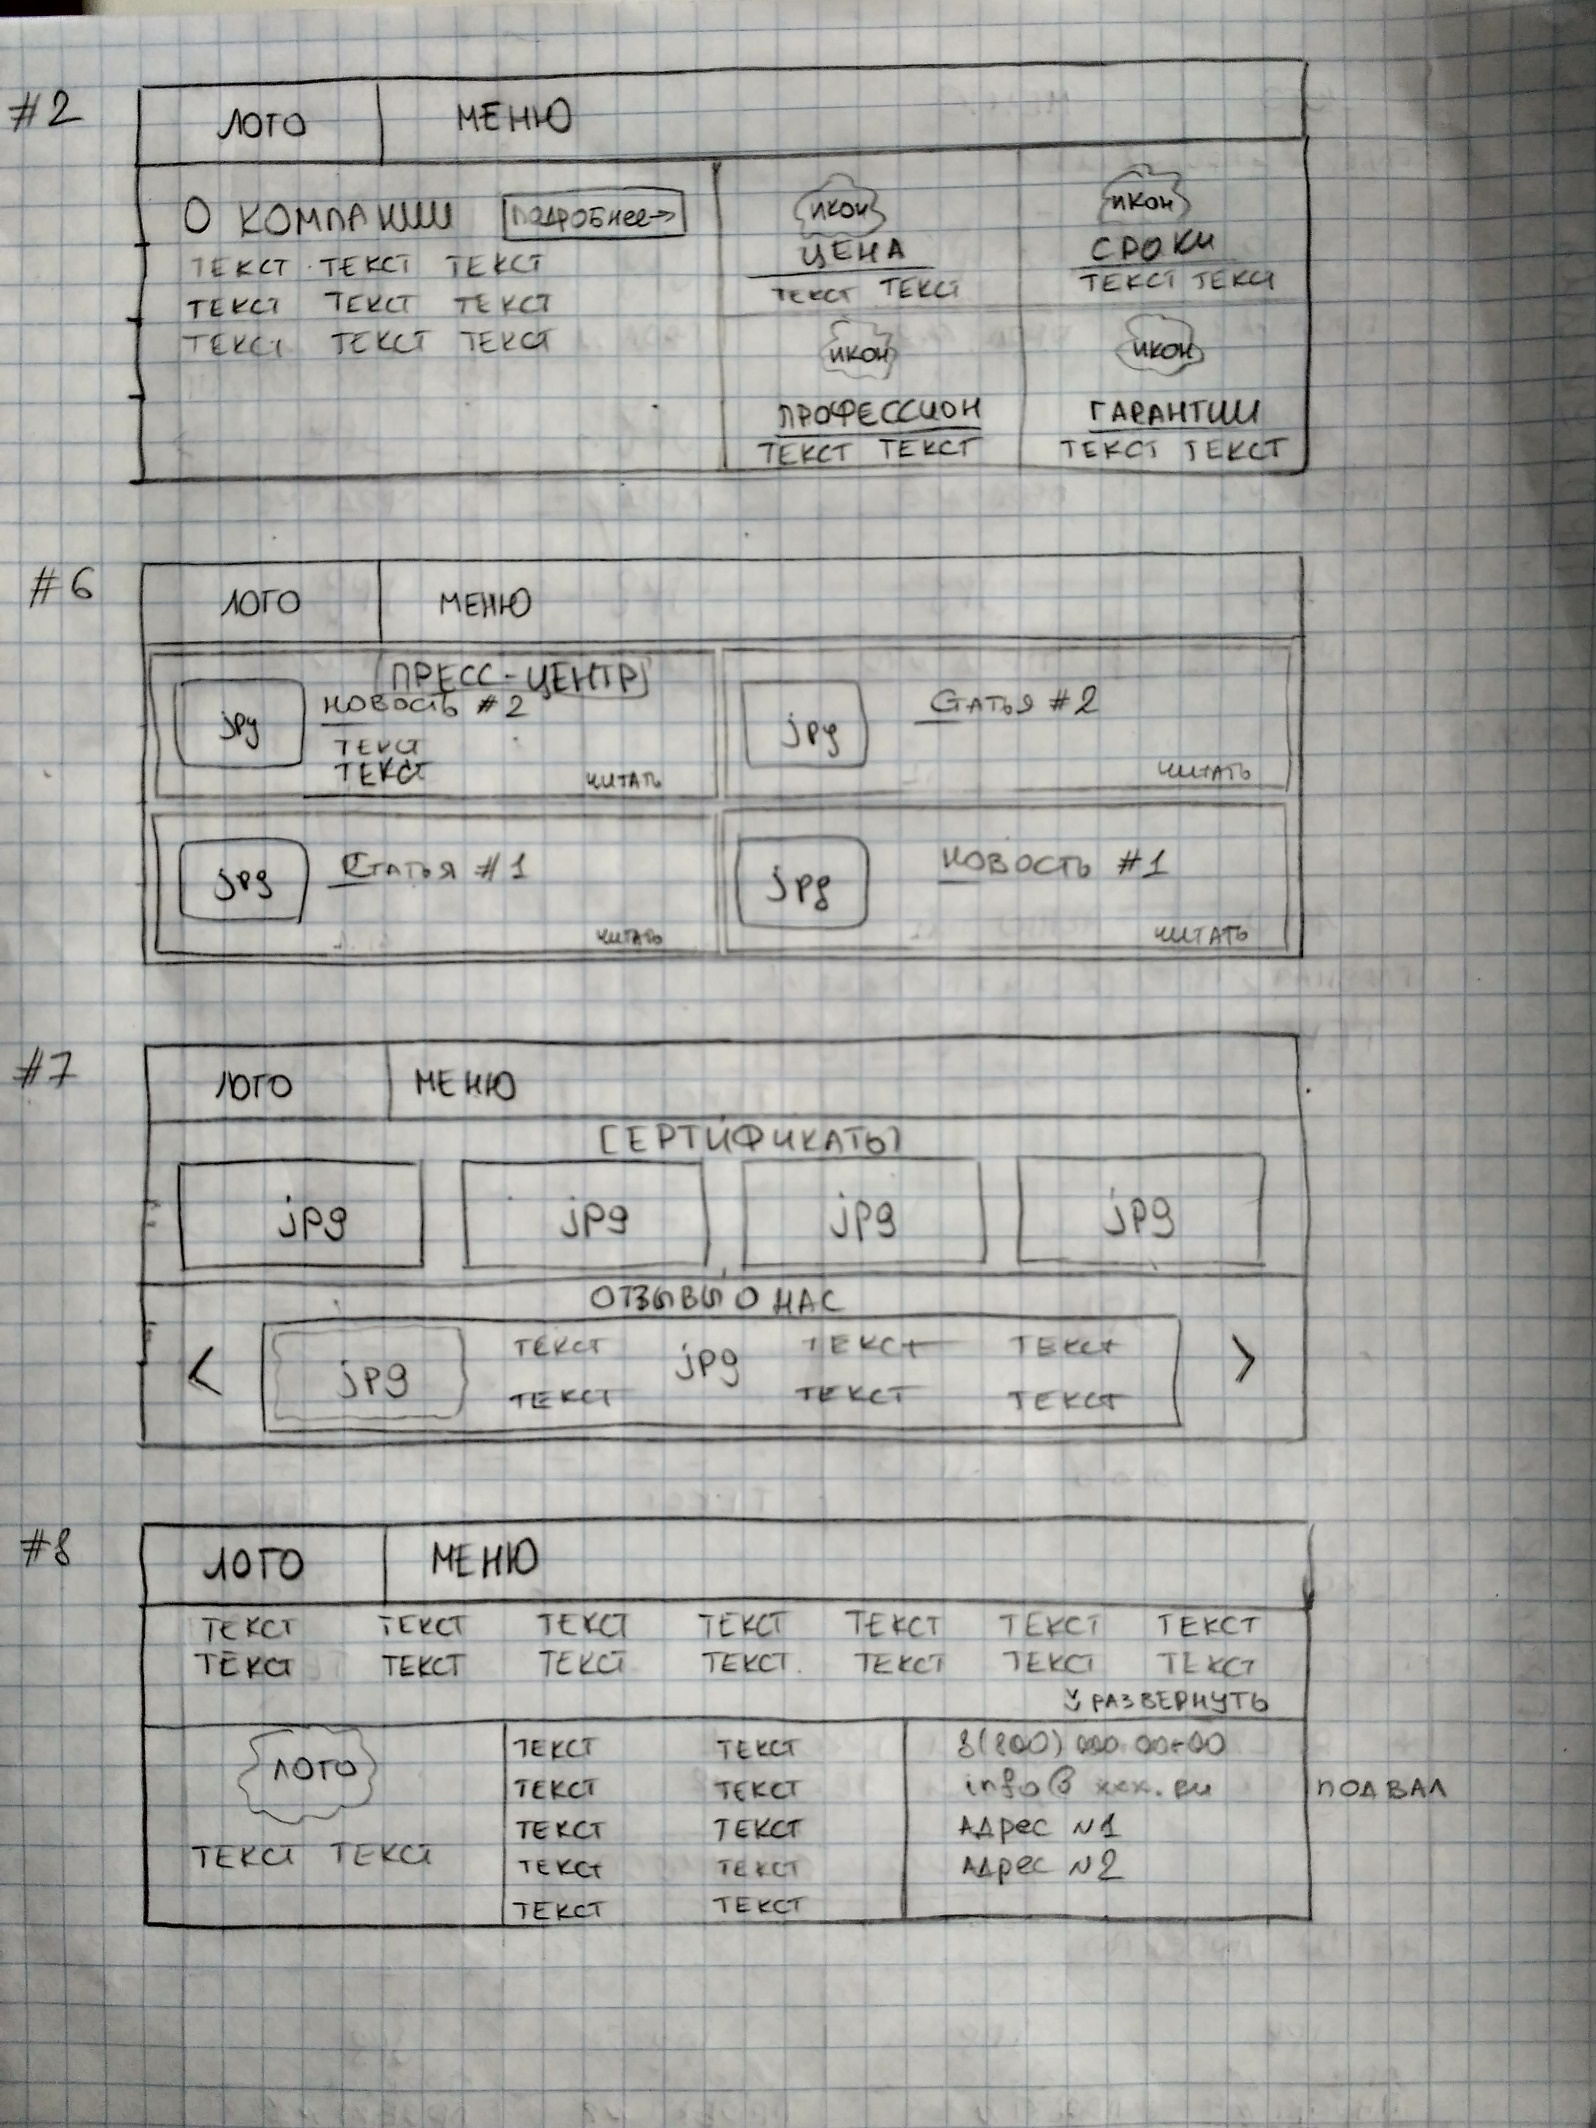 #2 ЛОГО МЕНЮ
О КОМПАНИИ ПОДРОБНее→
ТЕКСТ ТЕКСТ ТЕКСТ
ТЕКСТ ТЕКСТ ТЕКСТ
ТЕКСТ ТЕКСТ ТЕКСТ
ИКОН ИКОН
ЦЕНА СРОКИ
ТЕКСТ ТЕКСТ ТЕКСТ ТЕКСТ
ИКОН ИКОН
ПРОФЕССИОН ГАРАНТИИ
ТЕКСТ ТЕКСТ ТЕКСТ ТЕКСТ
#6 ЛОГО МЕНЮ
ПРЕСС-ЦЕНТР
jpg НОВОСТЬ #2
ТЕКСТ
ТЕКСТ
ЧИТАТЬ
jpg СТАТЬЯ #2
ЧИТАТЬ
jpg СТАТЬЯ #1
ЧИТАТЬ
jpg НОВОСТЬ #1
ЧИТАТЬ
#7 ЛОГО МЕНЮ
СЕРТИФИКАТЫ
jpg jpg jpg jpg
ОТЗЫВЫ О НАС
< jpg ТЕКСТ jpg ТЕКСТ ТЕКСТ >
ТЕКСТ ТЕКСТ ТЕКСТ
#8 ЛОГО МЕНЮ
ТЕКСТ ТЕКСТ ТЕКСТ ТЕКСТ ТЕКСТ ТЕКСТ ТЕКСТ
ТЕКСТ ТЕКСТ ТЕКСТ ТЕКСТ ТЕКСТ ТЕКСТ ТЕКСТ
РАЗВЕРНУТЬ
ЛОГО
ТЕКСТ ТЕКСТ
ТЕКСТ ТЕКСТ
ТЕКСТ ТЕКСТ
ТЕКСТ ТЕКСТ
ТЕКСТ ТЕКСТ
ТЕКСТ ТЕКСТ
8(800) 000 00-00
info@xxx.ru
АДРес №1
АДРес №2
ПОДВАЛ